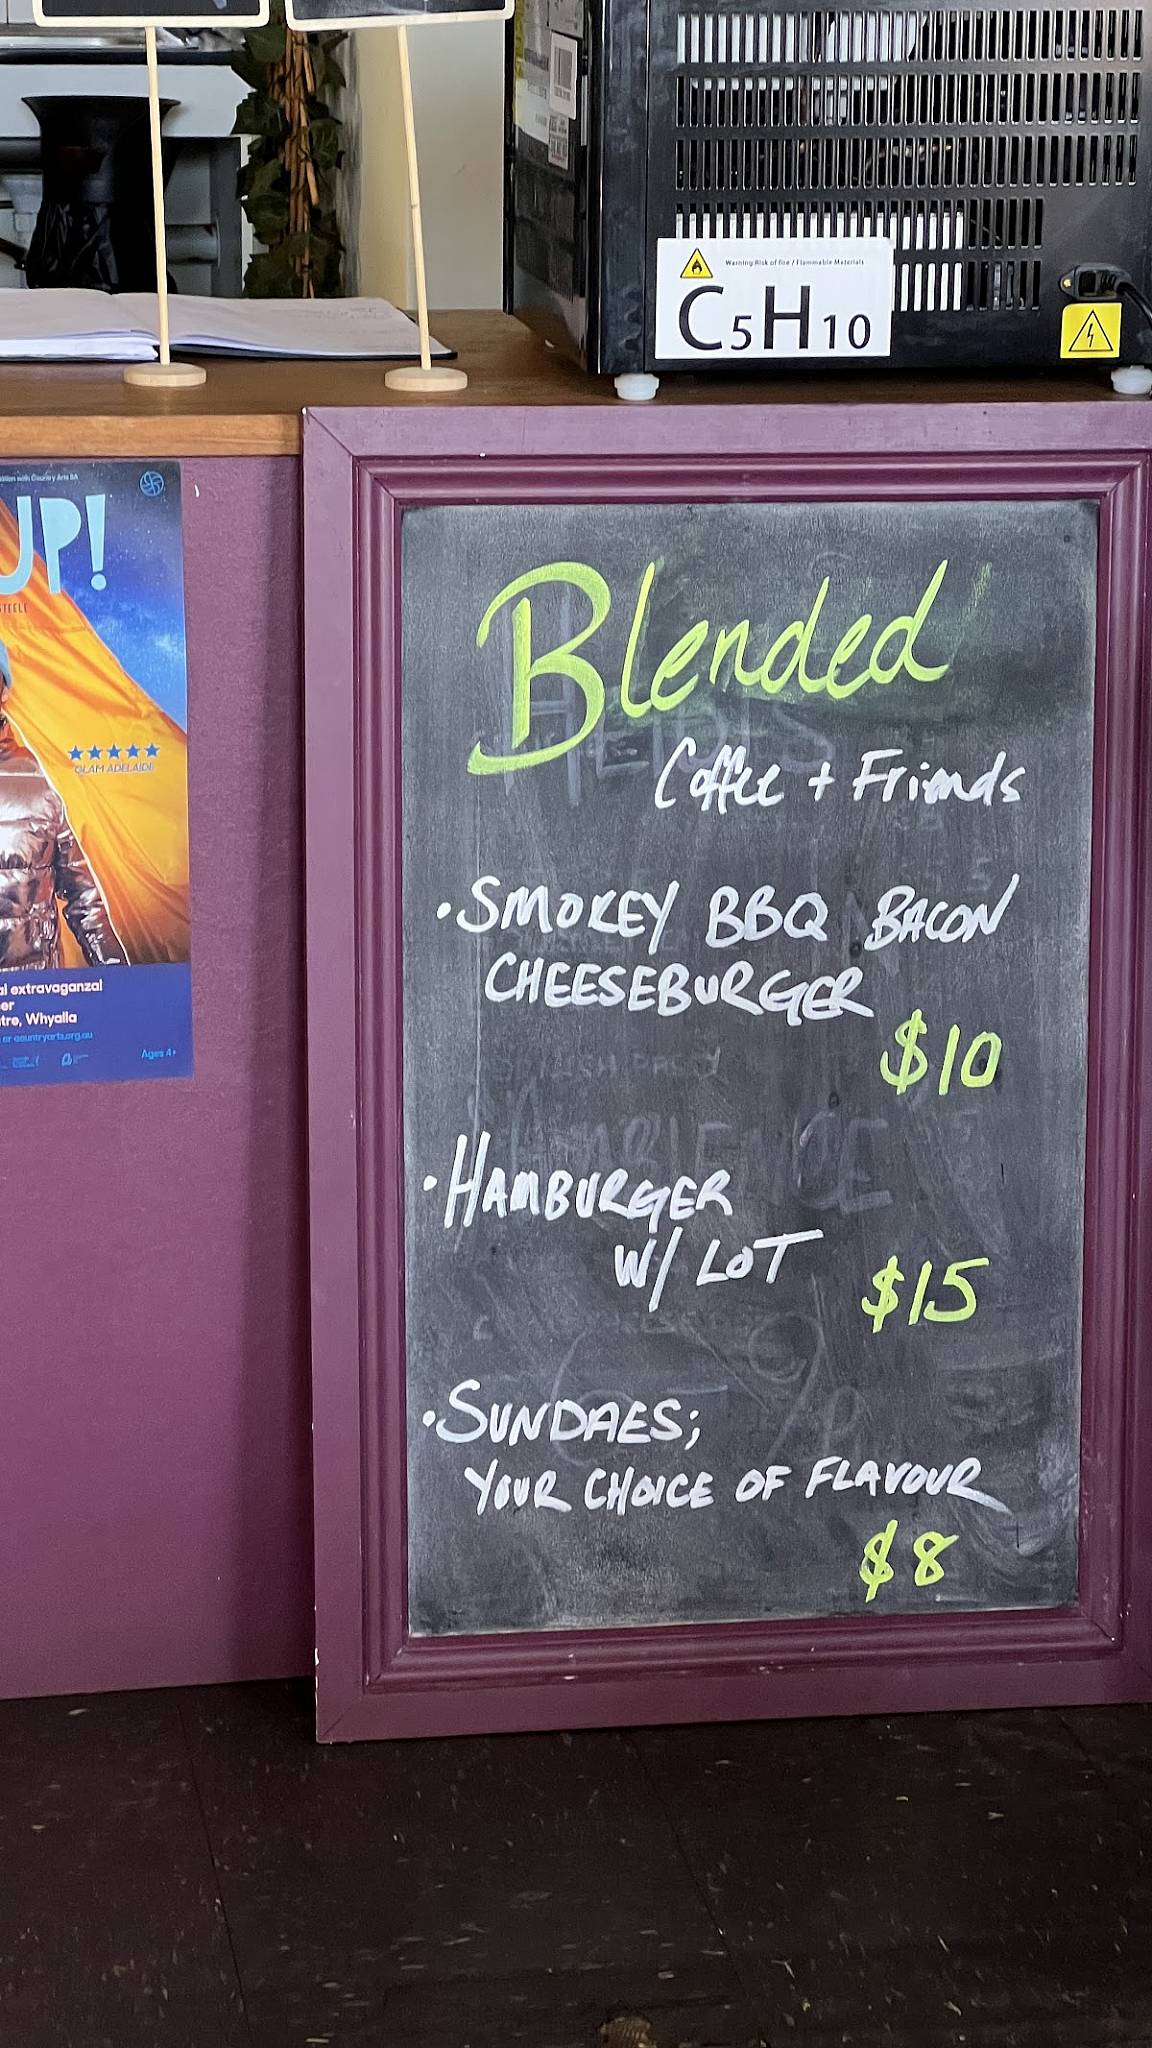 Warning Risk of fire / Flammable Materials
C5H10
UP!
GLAM ADELAIDE
al extravaganza!
er
tre, Whyalla
or countryarts.org.au
Ages 4+
Blended
Coffee + Friends
• SMOKEY BBQ BACON
CHEESEBURGER
$10
• HAMBURGER
W/ LOT
$15
• SUNDAES;
YOUR CHOICE OF FLAVOUR
$8